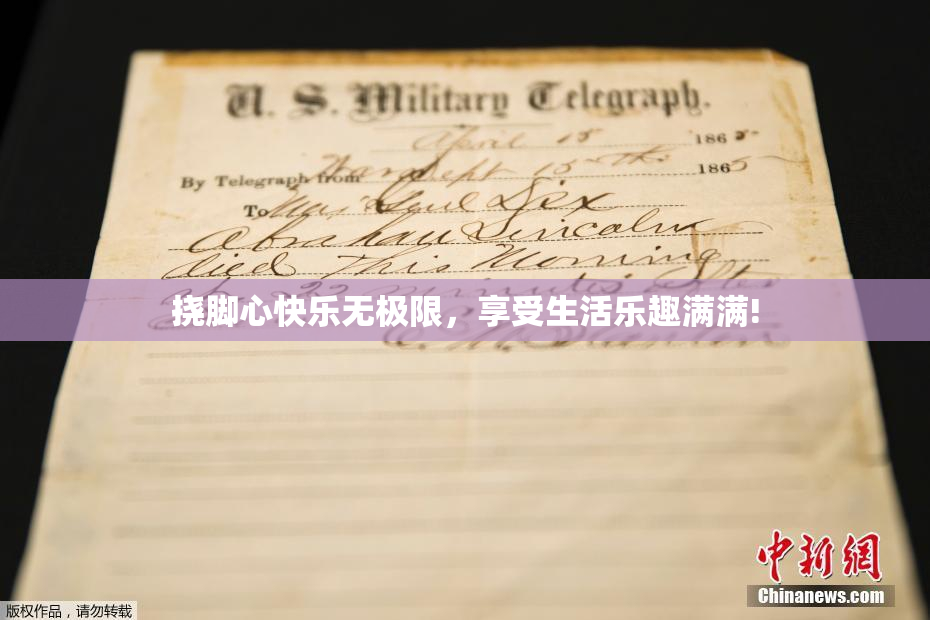 U. S. Military Telegraph.
April 15 1865
By Telegraph from War Dept 15th 1865
To Maj Genl Dix
Abraham Lincoln
died This Morning
22 minutes after
挠脚心快乐无极限，享受生活乐趣满满!
E. M. Stanton
中新网
Chinanews.com
版权作品，请勿转载